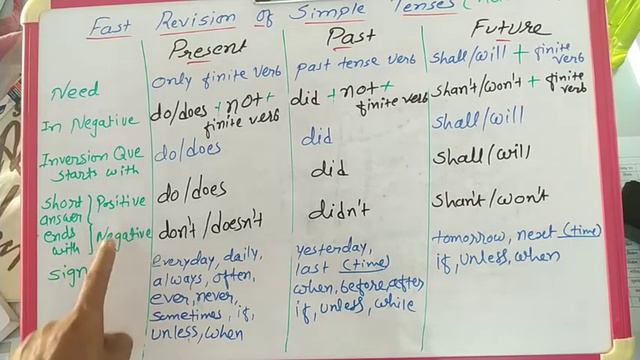 Fast Revision of Simple Tenses
Present Past Future
Need Only finite verb past tense verb shall/will + finite verb
In Negative do/does + not + finite verb did + not + finite verb shan't/won't + finite verb
Inversion Que starts with do/does did shall/will
short answer ends with
Positive do/does did shall/will
Negative don't/doesn't didn't shan't/won't
Sign
everyday, daily,
always, often,
ever, never,
sometimes, if,
unless, when
yesterday,
last (time)
when, before, after
if, unless, while
tomorrow, next (time)
if, unless, when